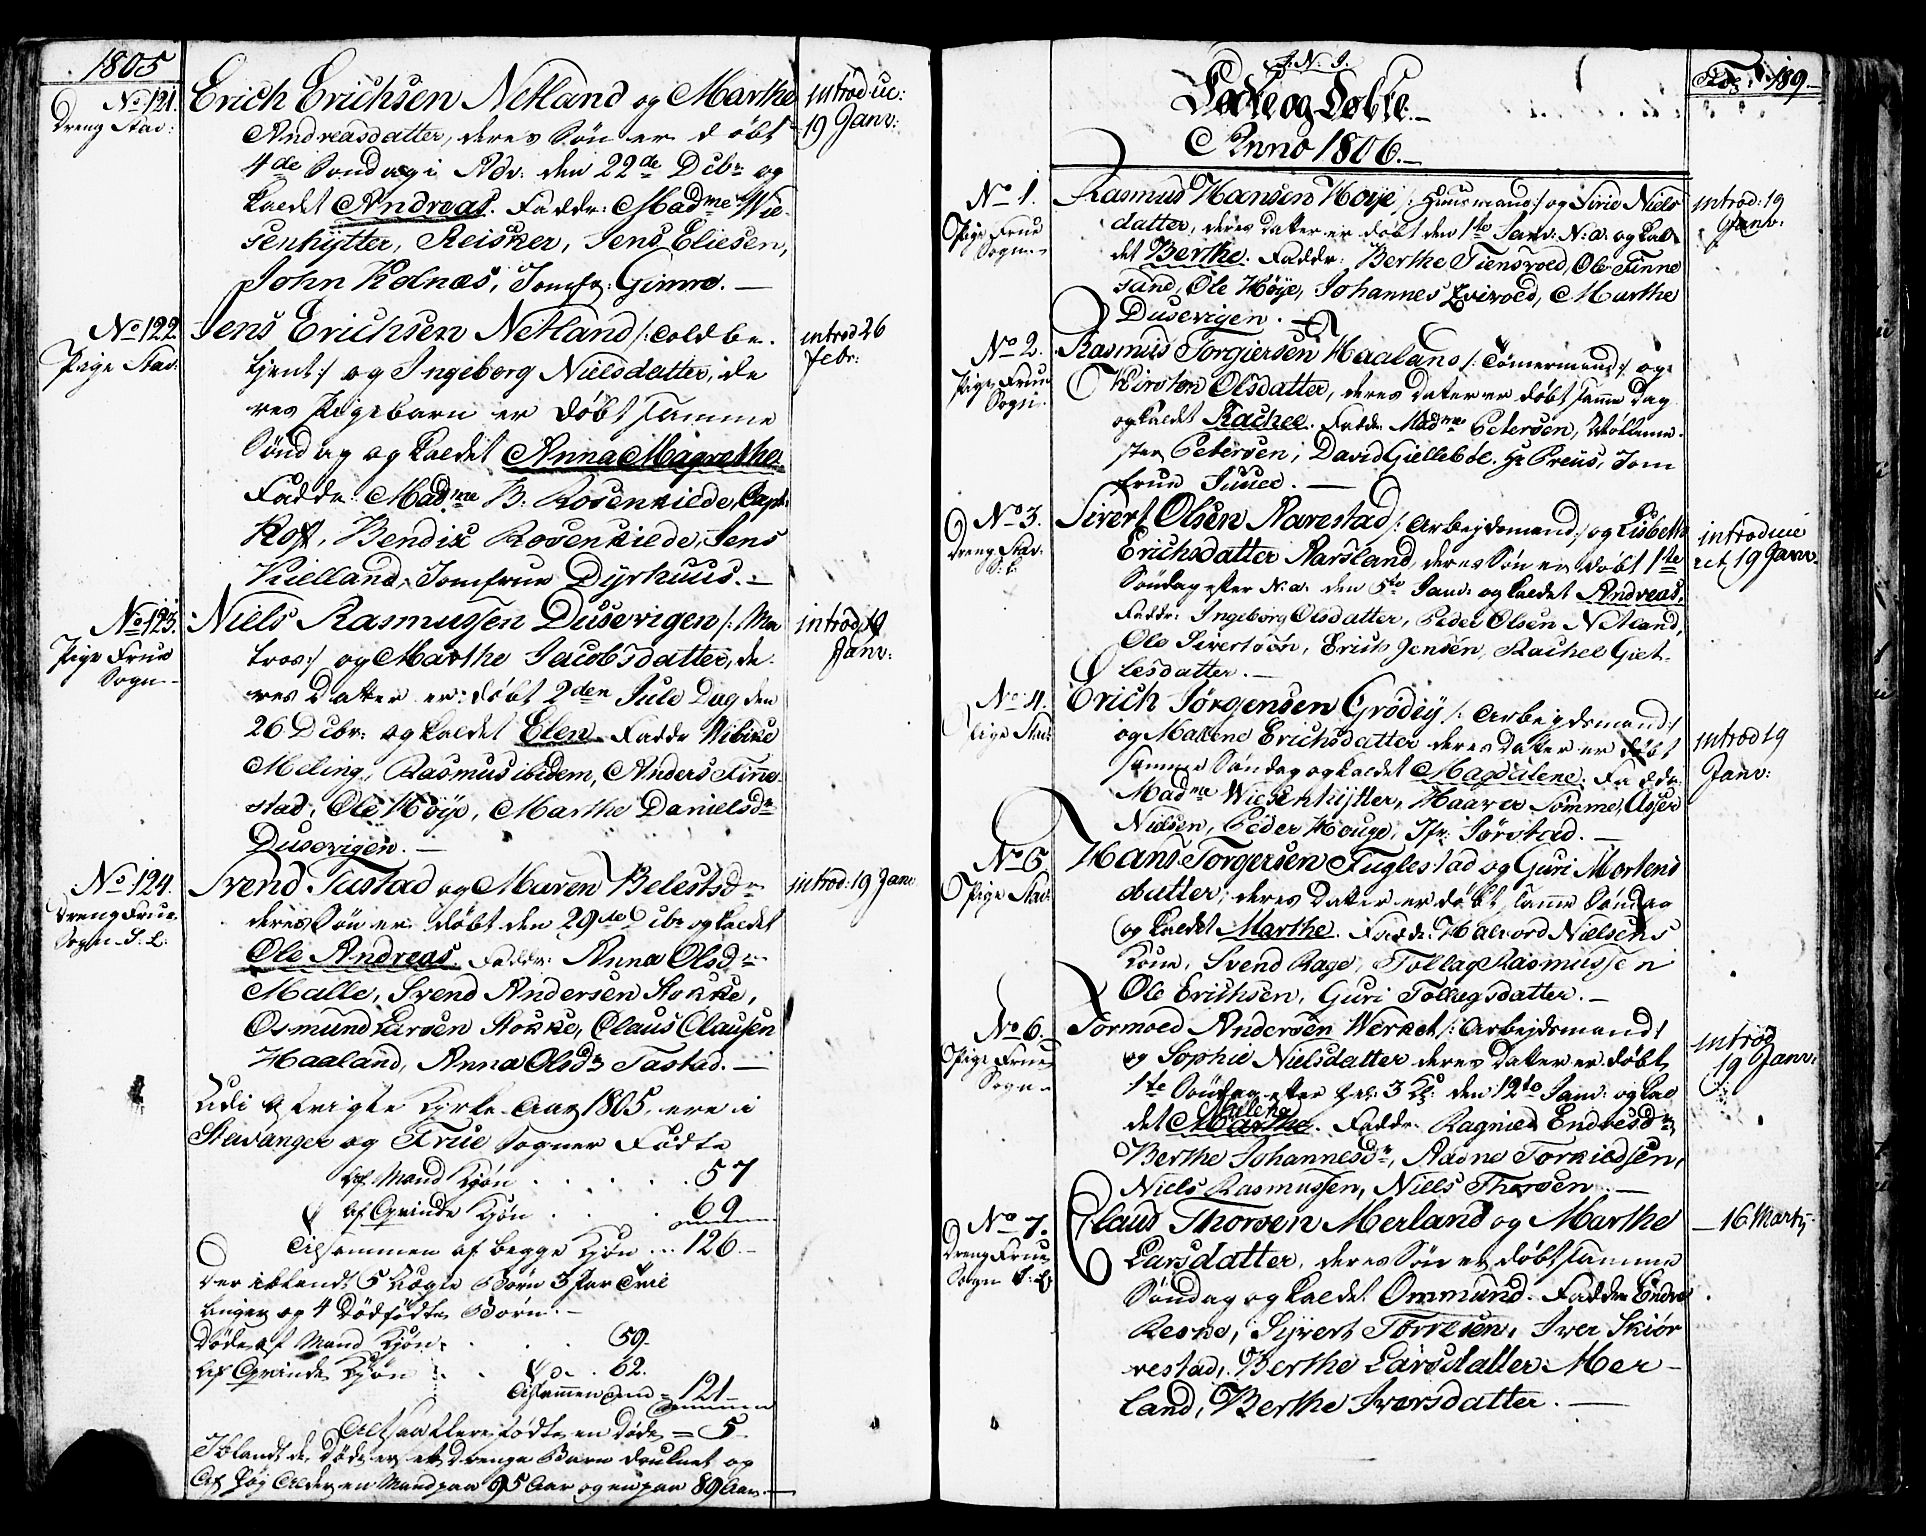 1805
No 121.
Dreng Stav:
Erich Erichsen Netland og Marthe
Andreasdatter, deres Søn er døbt
4de Søndag i Adv: den 22de Dcbr og
kaldet Andreas. Faddr: Madme Wie-
senhytter, Reisker, Jens Eliesen,
John Kolnæs, Jomfr: Gimre. —
introduc:
19 Janv:
No 122.
Pige Stav:
Jens Erichsen Netland /: Toldbe-
tjent :/ og Ingeborg Nielsdatter, de
res Pigebarn er døbt samme
Søndag og kaldet Anna Magrethe
Faddr. Madme B. Rosenkilde, Capt:
Roft, Bendix Rosenkilde, Jens
Kielland, Jomfrue Dyrhuus. —
introd 26
Febr:
No 123.
Pige Frue
Sogn —
Niels Rasmussen Dusevigen /: Ma
tros :/ og Marthe Jacobsdatter, de-
res Datter er døbt 2den Jule Dag den
26 Dcbr: og kaldet Elen. Faddr Wibike
Meling, Rasmus ibidem, Anders Finne
stad, Ole Høye, Marthe Danielsdr
Dusevigen. —
introd 19
Janv:
No 124.
Dreng Frue
Sogn S. L:
Svend Tastad og Maren Belestsdr
deres Søn er døbt den 29de Dcbr og kaldet
Ole Andreas. Faddr: Anna Olsdr
Malle, Svend Andersen Stokke,
Osmund Larsen Stokke, Claus Clausen
Haaland, Anna Olsdr Tastad. —
introd: 19 Janv
Udi Kirke Aar 1805. ere i
Stavanger og Frue Sogner Fødte
af Mand Kjøn . . . . . 57
af Qvinde Kjøn . . . 69
Tilsammen af begge Kjøn ... 126. —
Der iblandt 5 Uægte Børn 3 Par Tvil
linger og 4 Dødfødte Børn. —
Døde af Mand Kjøn . . . 59.
af Qvinde Kjøn . . . 62.
Tilsammen — 121 —
Altsaa flere fødte en døde = 5
Iblandt de Døde er et Drenge Barn druknet og
af høy Alder en Mand paa 95 Aar og en paa 89 Aar. —
J. N. J.
Fødte og Døbte. —
Anno 1806. —
189. —
No 1.
Pige Frue
Sogn —
Rasmus Hansen Høye /: Huusmand :/ og Sirie Niels
datter, deres Datter er døbt den 1te Janv: N. a. og kal
det Berthe. Faddr: Berthe Tiensvold, Ole Finne
sand, Ole Høye, Johannes Qvivold, Marthe
Dusevigen. —
introd: 19
Janv:
No 2.
Pige Frue
Sogn.
Rasmus Torgiersen Haaland /: Tömermand :/ og
Kirsten Olsdatter, deres Datter er døbt samme Dag
og kaldet Rachel. Faddr. Madme Petersen,
ster Petersen, David Gielleböl. Hr Preus, Jom
frue Juuel. —
No 3.
Dreng Stav:
S. L:
Sivert Olsen Aarestad /: Arbejdsmand :/ og Lisbeth
Erichsdatter Aarsland, deres Søn er døbt 1ste
Søndag efter N. a. den 5te Janv: og kaldet Andreas.
Faddr: Ingeborg Olsdatter, Peder Olsen Netland,
Ole Sivertsen, Erich Jensen, Rachel Giet-
lesdatter. —
introduce
ret 19 Janv.
No 4.
Pige Stav
Erich Jørgensen Grødey /: Arbejdsmand :/
og Malene Erichsdatter deres Datter er døbt
samme Søndag og kaldet Magdalene. Faddr.
Madme Wiesenhytter, Haaver Somme, Asser
Nielsen, Peder Houge, Jfr: Sörstad. —
introd 19
Janv:
No 5.
Pige Stav
Hans Torgersen Fuglestad og Guri Mortens
datter, deres Datter er døbt samme Søndag
og kaldet Marthe. Faddr. Halvord Nielsens
Kone, Svend Rage, Tollag Rasmussen
Ole Erichsen, Guri Tollegsdatter. —
No 6.
Pige Frue
Sogn —
Tormoed Andersen Werket /: Arbejdsmand :/
og Sophie Nielsdatter deres Datter er døbt
1te Søndag efter Hel: 3 K: den 12te Janv: og kal
Malena
det Marthe. Faddr. Ragnild Endresdr,
Berthe Johannesdr, Aadne Torkildsen,
Niels Rasmussen, Niels Thorsen —
introd
19 Janv:
No 7.
Dreng Frue
Sogn S: L:
Claus Thorsen Merland og Marthe
Larsdatter, deres Søn er døbt samme
Søndag og kaldet Ommund. Faddr. Endre
Reske, Syvert Torresen, Iver Skiör
restad, Berthe Larsdatter Mer-
land, Berthe Iversdatter. —
— 16 Martj.